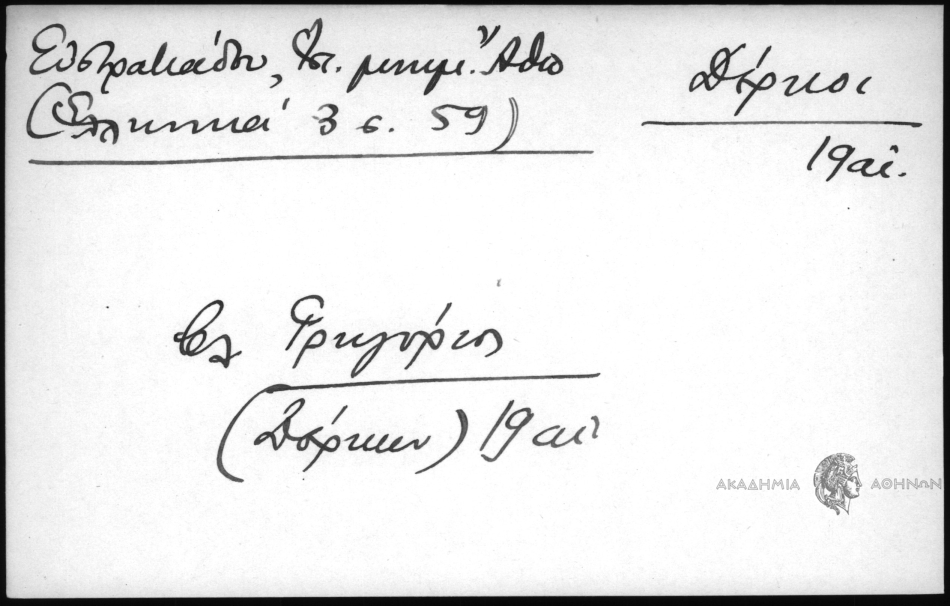 Εὐστρατιάδου, Ἱστ. μνημ. Ἄθω
(Ἑλληνικά 3 σ. 59)
Δέρκοι
19 αἰ.
βλ Γρηγόριος
(Δέρκων) 19 αἰ
ΑΚΑΔΗΜΙΑ ΑΘΗΝΩΝ